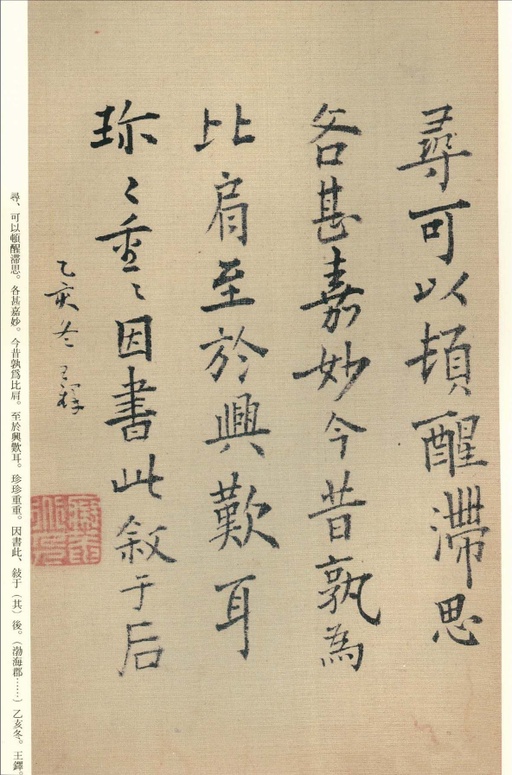 尋可以頓醒滯思
各甚嘉妙今昔孰為
比肩至於興歎耳
珎〻重〻因書此敘于后
乙亥冬王鐸
尋、可以頓醒滯思。各甚嘉妙。今昔孰為比肩。至於興歎耳。珍珍重重。因書此、敍于（其）後。（渤海郡……）乙亥冬。王鐸。